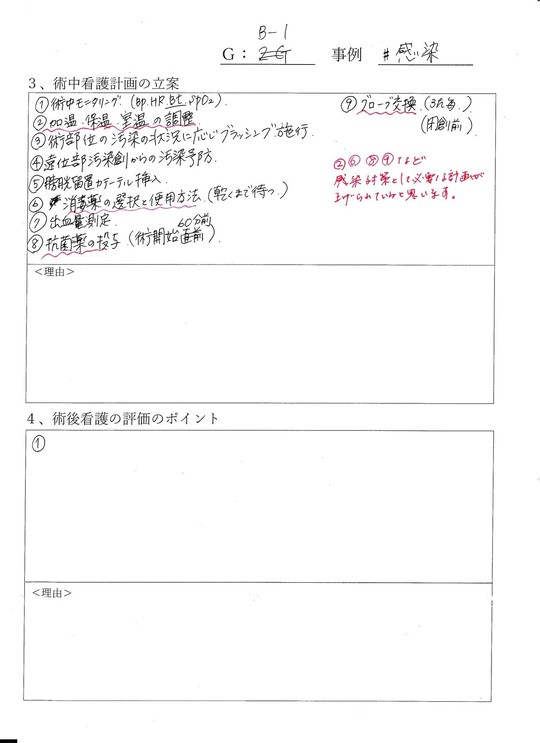 B-1
G: 2G 事例 #感染
3、術中看護計画の立案
①術中モニタリング (BP.HR.Bt.SpO2).
②加温.保温.室温の調整.
③術部位の汚染の状況に応じブラッシング施行.
④遠位部汚染創からの汚染予防.
⑤膀胱留置カテーテル挿入.
⑥消毒薬の選択と使用方法 (乾くまで待つ.)
⑦出血量測定.
60分前
⑧抗菌薬の投与 (術開始直前).
⑨グローブ交換. (3h毎.)
(閉創前)
②⑥⑧⑨など
感染対策として必要な計画が
上げられていると思います。
<理由>
4、術後看護の評価のポイント
①
<理由>